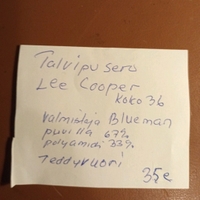 Talvipusero
Lee Cooper
Koko 36
Valmistaja Blueman
puvilla 67%
polyamidi 33%
Teddyvuori
35e